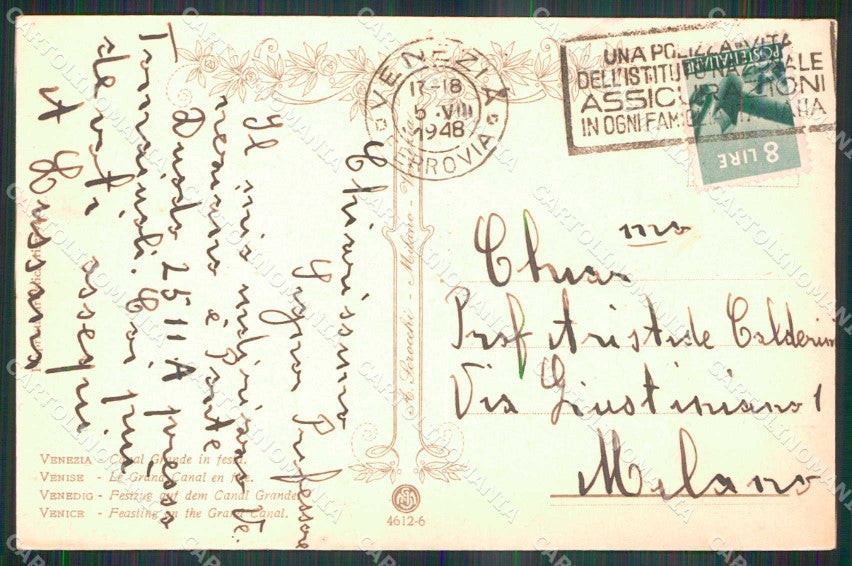 VENEZIA
17-18
5.VIII
1948
FERROVIA
UNA POLIZZA VITA
DELL'ISTITUTO NAZIONALE
ASSICURAZIONI
IN OGNI FAMIGLIA ITALIANA
POSTE ITALIANE
8 LIRE
Chiarissimo
Signor Professore
Il mio indirizzo Ve-
neziano è Ponte
Guido 2511 A presso
Tommasoli. Coi più
devoti ossequi
Chiar mo
Prof Aristide Calderini
Via Giustiniano 1
Milano
A. Scrocchi - Milano
VENEZIA - Canal Grande in festa.
VENISE - Le Grand Canal en fête.
VENEDIG - Festzug auf dem Canal Grande
VENICE - Feasting on the Grand Canal.
4612-6
CARTOLINOMANIA